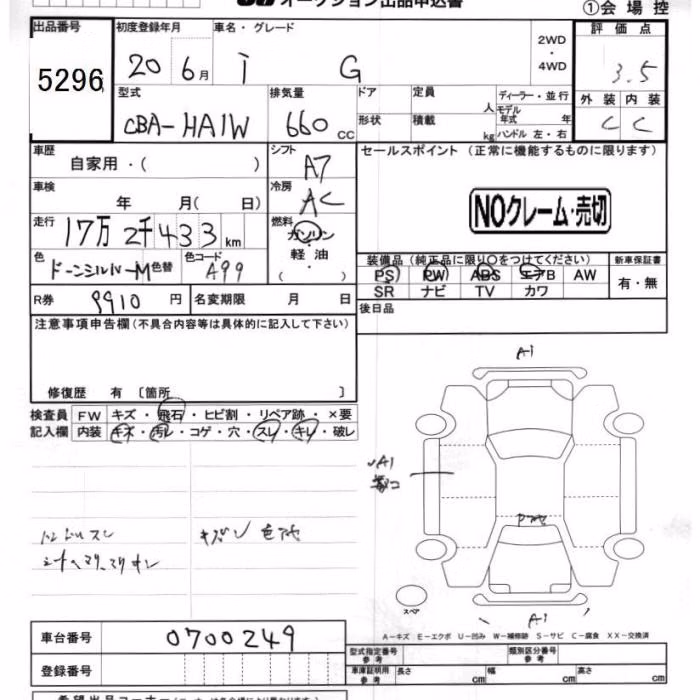 オークション出品申込書
①会場控
出品番号 初度登録年月 車名・グレード 2WD・4WD 評価点
5296 20 6月 i G 3.5
型式 排気量 ドア 定員 人 ディーラー・並行 外装 内装
CBA-HA1W 660cc 形状 積載 kg モデル年式 年 C C
ハンドル 左・右
車歴 シフト セールスポイント (正常に機能するものに限ります)
自家用・( ) A7
車検 冷房
年 月( 日) AC NOクレーム・売切
走行 燃料
17万2千433km ガソリン・軽油・( )
色 色替 色コード 装備品(純正品に限り○をつけてください) 新車保証書
ドーンシルバーM A99 PS PW ABS エアB AW 有・無
SR ナビ TV カワ
R券 9910円 名変期限 月 日 後日品
注意事項申告欄(不具合内容等は具体的に記入して下さい)
修復歴 有 〔箇所 〕
検査員 FW キズ・飛石・ヒビ割・リペア跡・×要
記入欄 内装 キズ・汚レ・コゲ・穴・スレ・キレ・破レ
A1
A1
ハンドルスレ
スペア
A1
A-キズ E-エクボ U-凹み W-補修跡 S-サビ C-腐食 XX-交換済
車台番号 0700249 型式指定番号 参考 類別区分番号 参考
登録番号 車庫証明用 参考 長さ cm 幅 cm 高さ cm